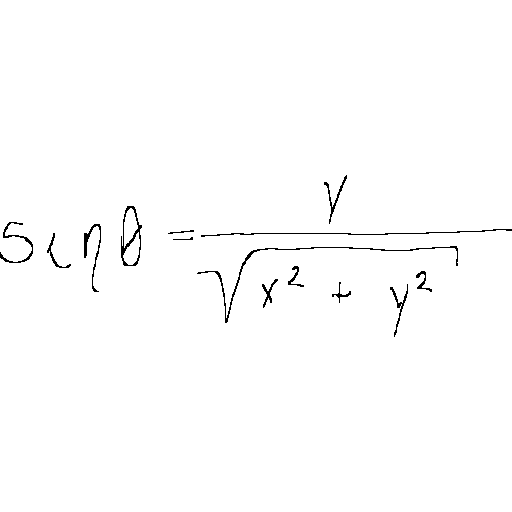 \sin \theta = \frac{y}{\sqrt{x^2 + y^2}}